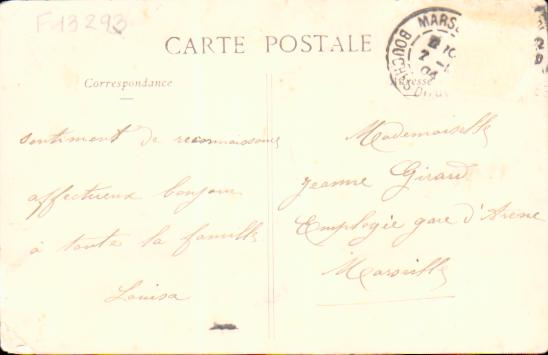 F 13 293
CARTE POSTALE
MARS
BOUCH
Correspondance
Adresse
sentiment de reconnaissance
affectueux bonjour
à toute la famille
Louisa
Mademoiselle
Jeanne Girard
Employée gare d'Arenc
Marseille